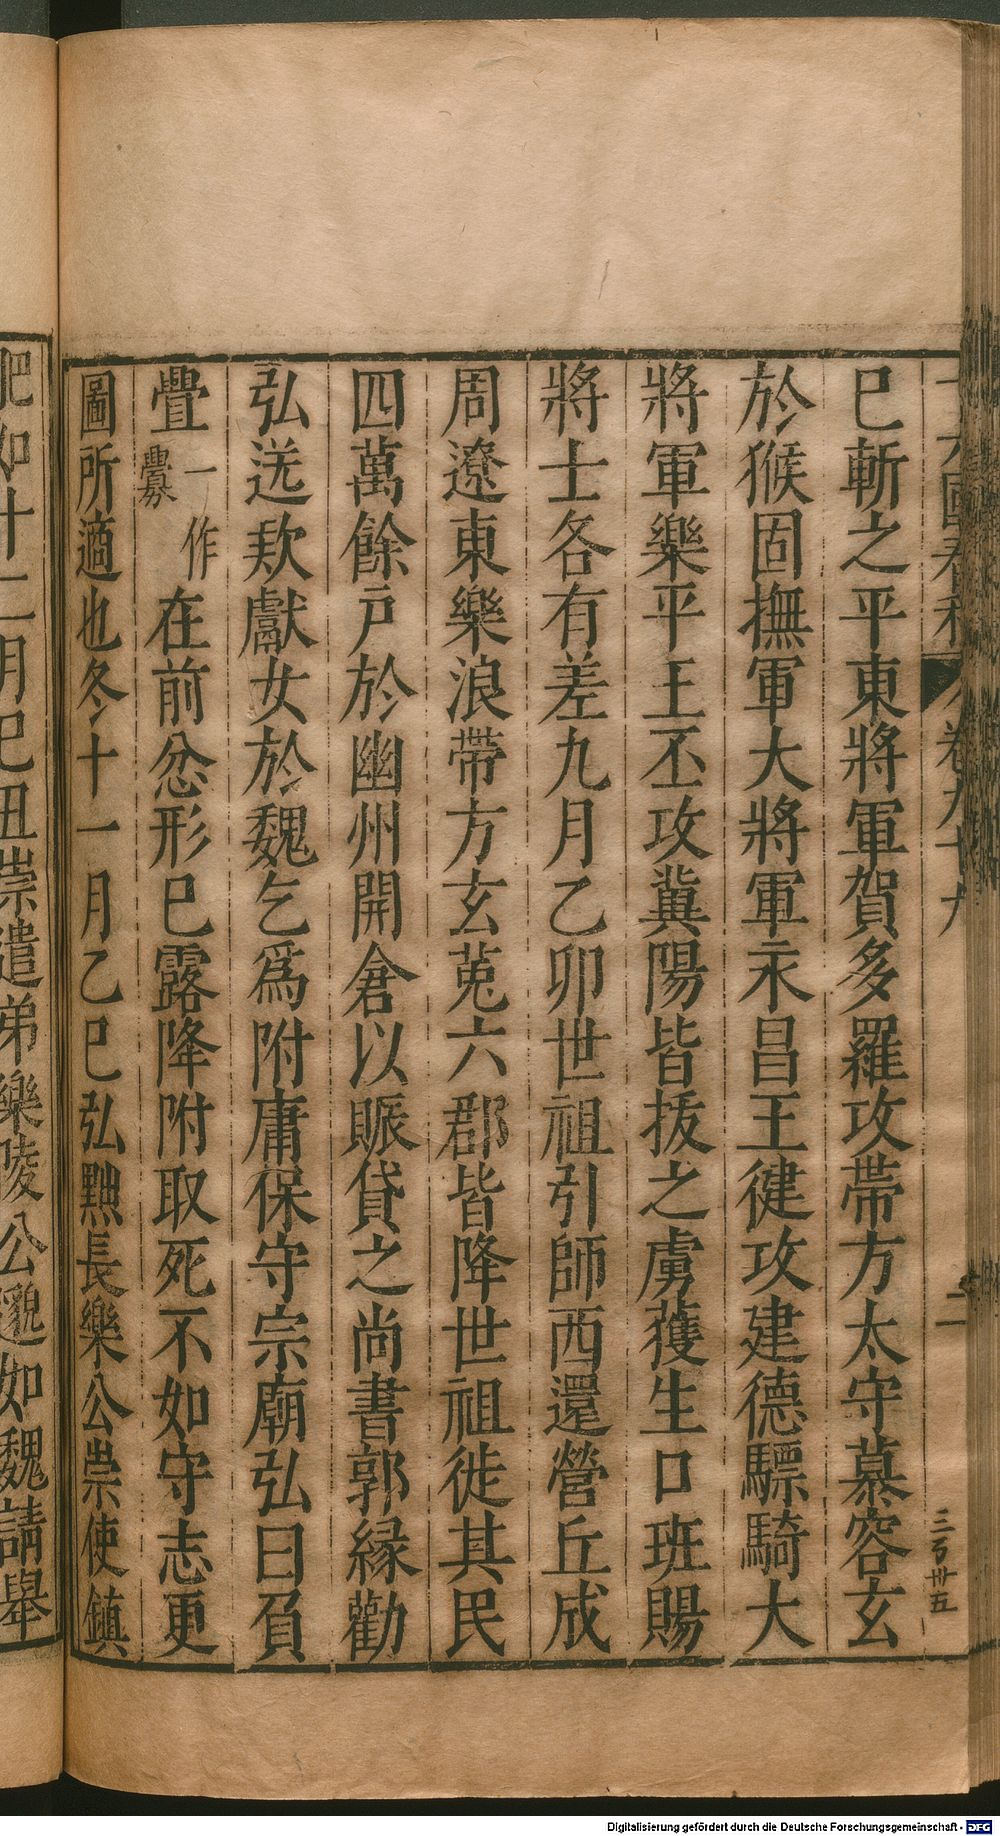 十六國春秋 卷九十九 二 三百卅五
巳斬之平東將軍賀多羅攻帶方太守慕容玄
於猴固撫軍大將軍永昌王健攻建德驃騎大
將軍樂平王丕攻冀陽皆拔之虜獲生口班賜
將士各有差九月乙卯世祖引師西還營丘成
周遼東樂浪帶方玄菟六郡皆降世祖徙其民
四萬餘戶於幽州開倉以賑貸之尚書郭緣勸
弘送欵獻女於魏乞爲附庸保守宗廟弘曰負
舋一作釁在前忿形巳露降附取死不如守志更
圖所適也冬十一月乙巳弘黜長樂公崇使鎮
肥如十二月巳丑崇遣弟樂陵公邈如魏請舉
Digitalisierung gefördert durch die Deutsche Forschungsgemeinschaft - DFG